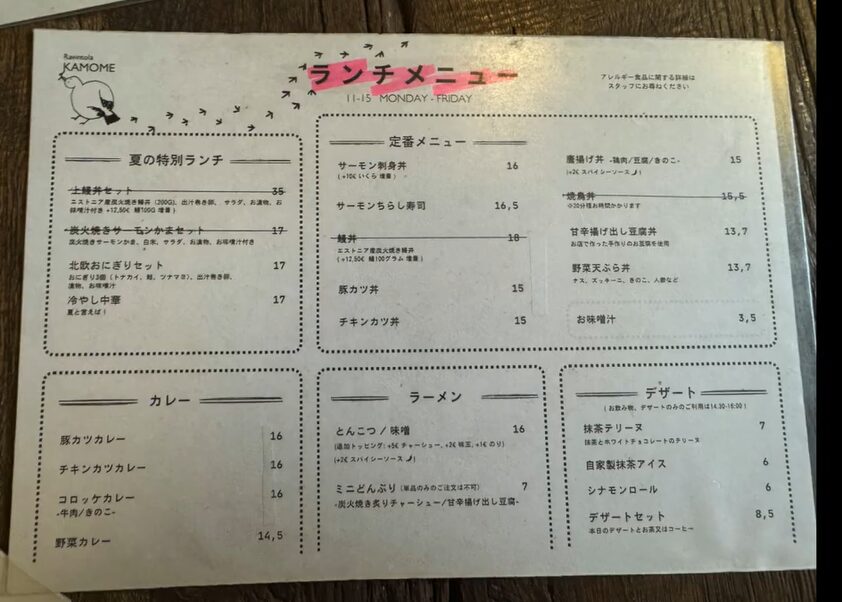 Ravintola
KAMOME
ランチメニュー
11-15 MONDAY - FRIDAY
アレルギー食品に関する詳細は
スタッフにお尋ねください
夏の特別ランチ
上鰻丼セット 35
エストニア産炭火焼き鰻丼（200G)、出汁巻き卵、サラダ、お漬物、お
味噌汁付き +12,50€ 鰻100G 増量 )
炭火焼きサーモンかまセット 17
炭火焼きサーモンかま、白米、サラダ、お漬物、お味噌汁付き
北欧おにぎりセット 17
おにぎり3個（トナカイ、鮭、ツナマヨ）、出汁巻き卵、
漬物、お味噌汁
冷やし中華 17
夏と言えば！
定番メニュー
サーモン刺身丼 16
( +10€ いくら 増量 )
サーモンちらし寿司 16,5
鰻丼 18
エストニア産炭火焼き鰻丼
( +12,50€ 鰻100グラム 増量 )
豚カツ丼 15
チキンカツ丼 15
唐揚げ丼 -鶏肉/豆腐/きのこ- 15
(+2€ スパイシーソース🌶)
焼鳥丼 15,5
※20分程お時間かかります
甘辛揚げ出し豆腐丼 13,7
お店で作った手作りのお豆腐を使用
野菜天ぷら丼 13,7
ナス、ズッキーニ、きのこ、人参など
お味噌汁 3,5
カレー
豚カツカレー 16
チキンカツカレー 16
コロッケカレー 16
-牛肉/きのこ-
野菜カレー 14,5
ラーメン
とんこつ / 味噌 16
(追加トッピング: +5€ チャーシュー、+2€ 味玉、+1€ のり)
(+2€ スパイシーソース🌶)
ミニどんぶり（単品のみのご注文は不可） 7
-炭火焼き炙りチャーシュー/甘辛揚げ出し豆腐-
デザート
( お飲み物、デザートのみのご利用は14:30-16:00 )
抹茶テリーヌ 7
抹茶とホワイトチョコレートのテリーヌ
自家製抹茶アイス 6
シナモンロール 6
デザートセット 8,5
本日のデザートとお茶又はコーヒー